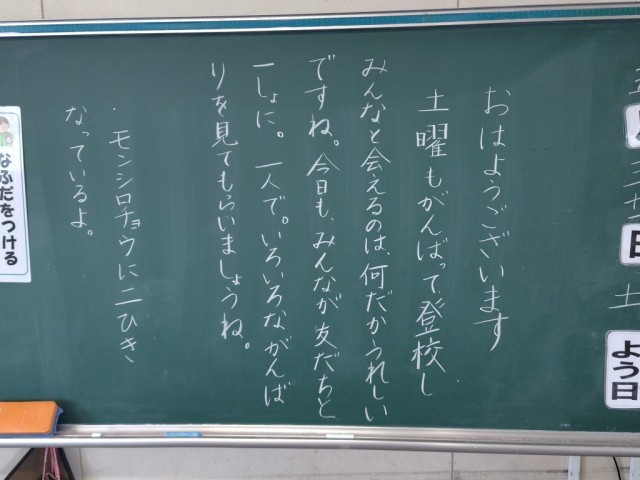 日
土
よう日
おはようございます
土曜もがんばって登校し
みんなと会えるのは、何だかうれしい
ですね。今日も、みんなが友だちと
一しょに。一人で。いろいろながんば
りを見てもらいましょうね。
・モンシロチョウに二ひき
なっているよ。
なふだをつける